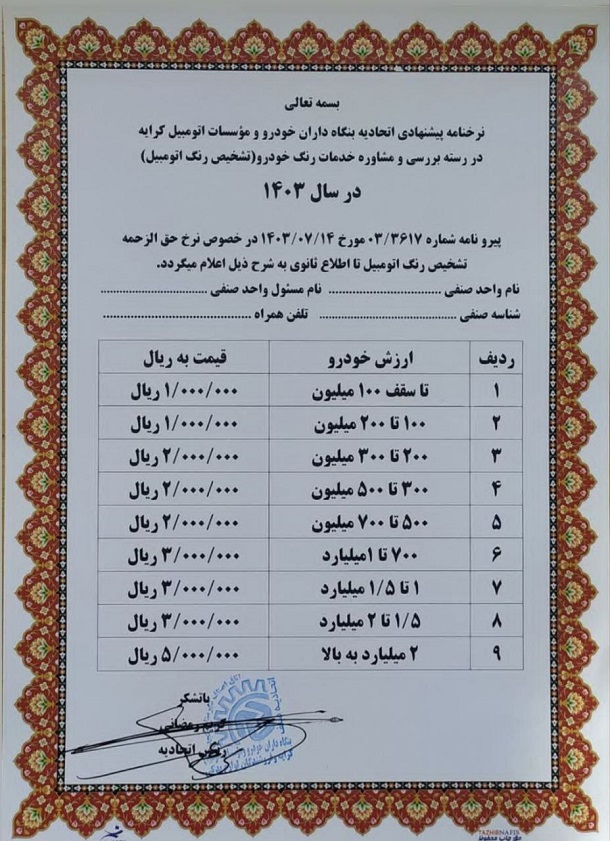 بسمه تعالی
نرخنامه پیشنهادی اتحادیه بنگاه داران خودرو و مؤسسات اتومبیل کرایه
در رسته بررسی و مشاوره خدمات رنگ خودرو(تشخیص رنگ اتومبیل)
در سال ۱۴۰۳
پیرو نامه شماره ۰۳/۳۶۱۷ مورخ ۱۴۰۳/۰۷/۱۴ در خصوص نرخ حق الزحمه
تشخیص رنگ اتومبیل تا اطلاع ثانوی به شرح ذیل اعلام میگردد.
نام واحد صنفی ........................................ نام مسئول واحد صنفی ........................................
شناسه صنفی ........................................ تلفن همراه ........................................
ردیف ارزش خودرو قیمت به ریال
۱ تا سقف ۱۰۰ میلیون ۱/۰۰۰/۰۰۰ ریال
۲ ۱۰۰ تا ۲۰۰ میلیون ۱/۰۰۰/۰۰۰ ریال
۳ ۲۰۰ تا ۳۰۰ میلیون ۲/۰۰۰/۰۰۰ ریال
۴ ۳۰۰ تا ۵۰۰ میلیون ۲/۰۰۰/۰۰۰ ریال
۵ ۵۰۰ تا ۷۰۰ میلیون ۲/۰۰۰/۰۰۰ ریال
۶ ۷۰۰ تا ۱میلیارد ۳/۰۰۰/۰۰۰ ریال
۷ ۱ تا ۱/۵ میلیارد ۳/۰۰۰/۰۰۰ ریال
۸ ۱/۵ تا ۲ میلیارد ۳/۰۰۰/۰۰۰ ریال
۹ ۲ میلیارد به بالا ۵/۰۰۰/۰۰۰ ریال
باتشکر
کریم رمضانی
رئیس اتحادیه
TAZHIBNAFIS
حق چاپ محفوظ